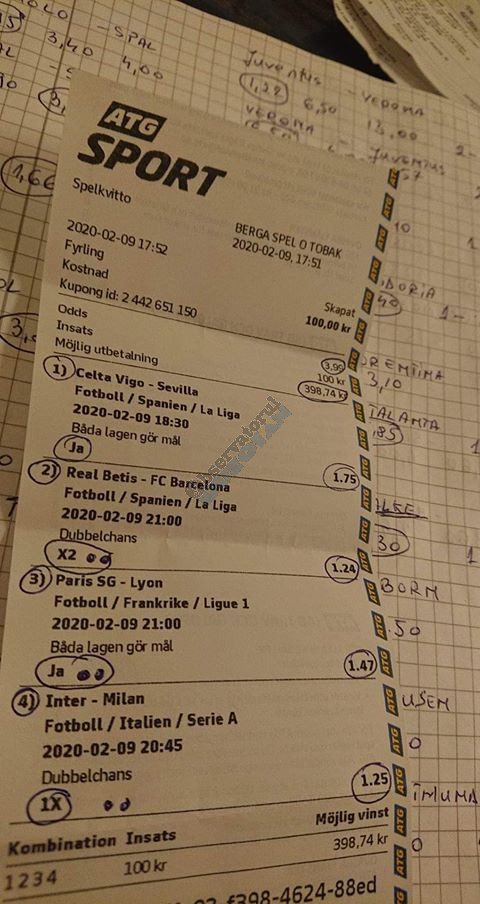 OLO - SPAL
3,40 4,00
Juventus - VERONA
1,29 6,50 13,00
VERONA - JUVENTUS
1,66
ATG
SPORT
Spelkvitto
BERGA SPEL O TOBAK
2020-02-09 17:52 2020-02-09, 17:51
Fyrling Skapat
Kostnad 100,00 kr
Kupong id: 2 442 651 150
Odds 3,99
Insats 100 kr
Möjlig utbetalning 398,74 kr
1) Celta Vigo - Sevilla
Fotboll / Spanien / La Liga
2020-02-09 18:30
Båda lagen gör mål
Ja 1.75
2) Real Betis - FC Barcelona
Fotboll / Spanien / La Liga
2020-02-09 21:00
Dubbelchans
X2 1.24
3) Paris SG - Lyon
Fotboll / Frankrike / Ligue 1
2020-02-09 21:00
Båda lagen gör mål
Ja 1.47
4) Inter - Milan
Fotboll / Italien / Serie A
2020-02-09 20:45
Dubbelchans
1X 1.25
Kombination Insats Möjlig vinst
1 2 3 4 100 kr 398,74 kr
f398-4624-88ed
ATG
ATG
ATG
ATG
ATG
ATG
ATG
ATG
ATG
ATG
ATG
ATG
ATG
10
DORIA
3,10
85
30
50